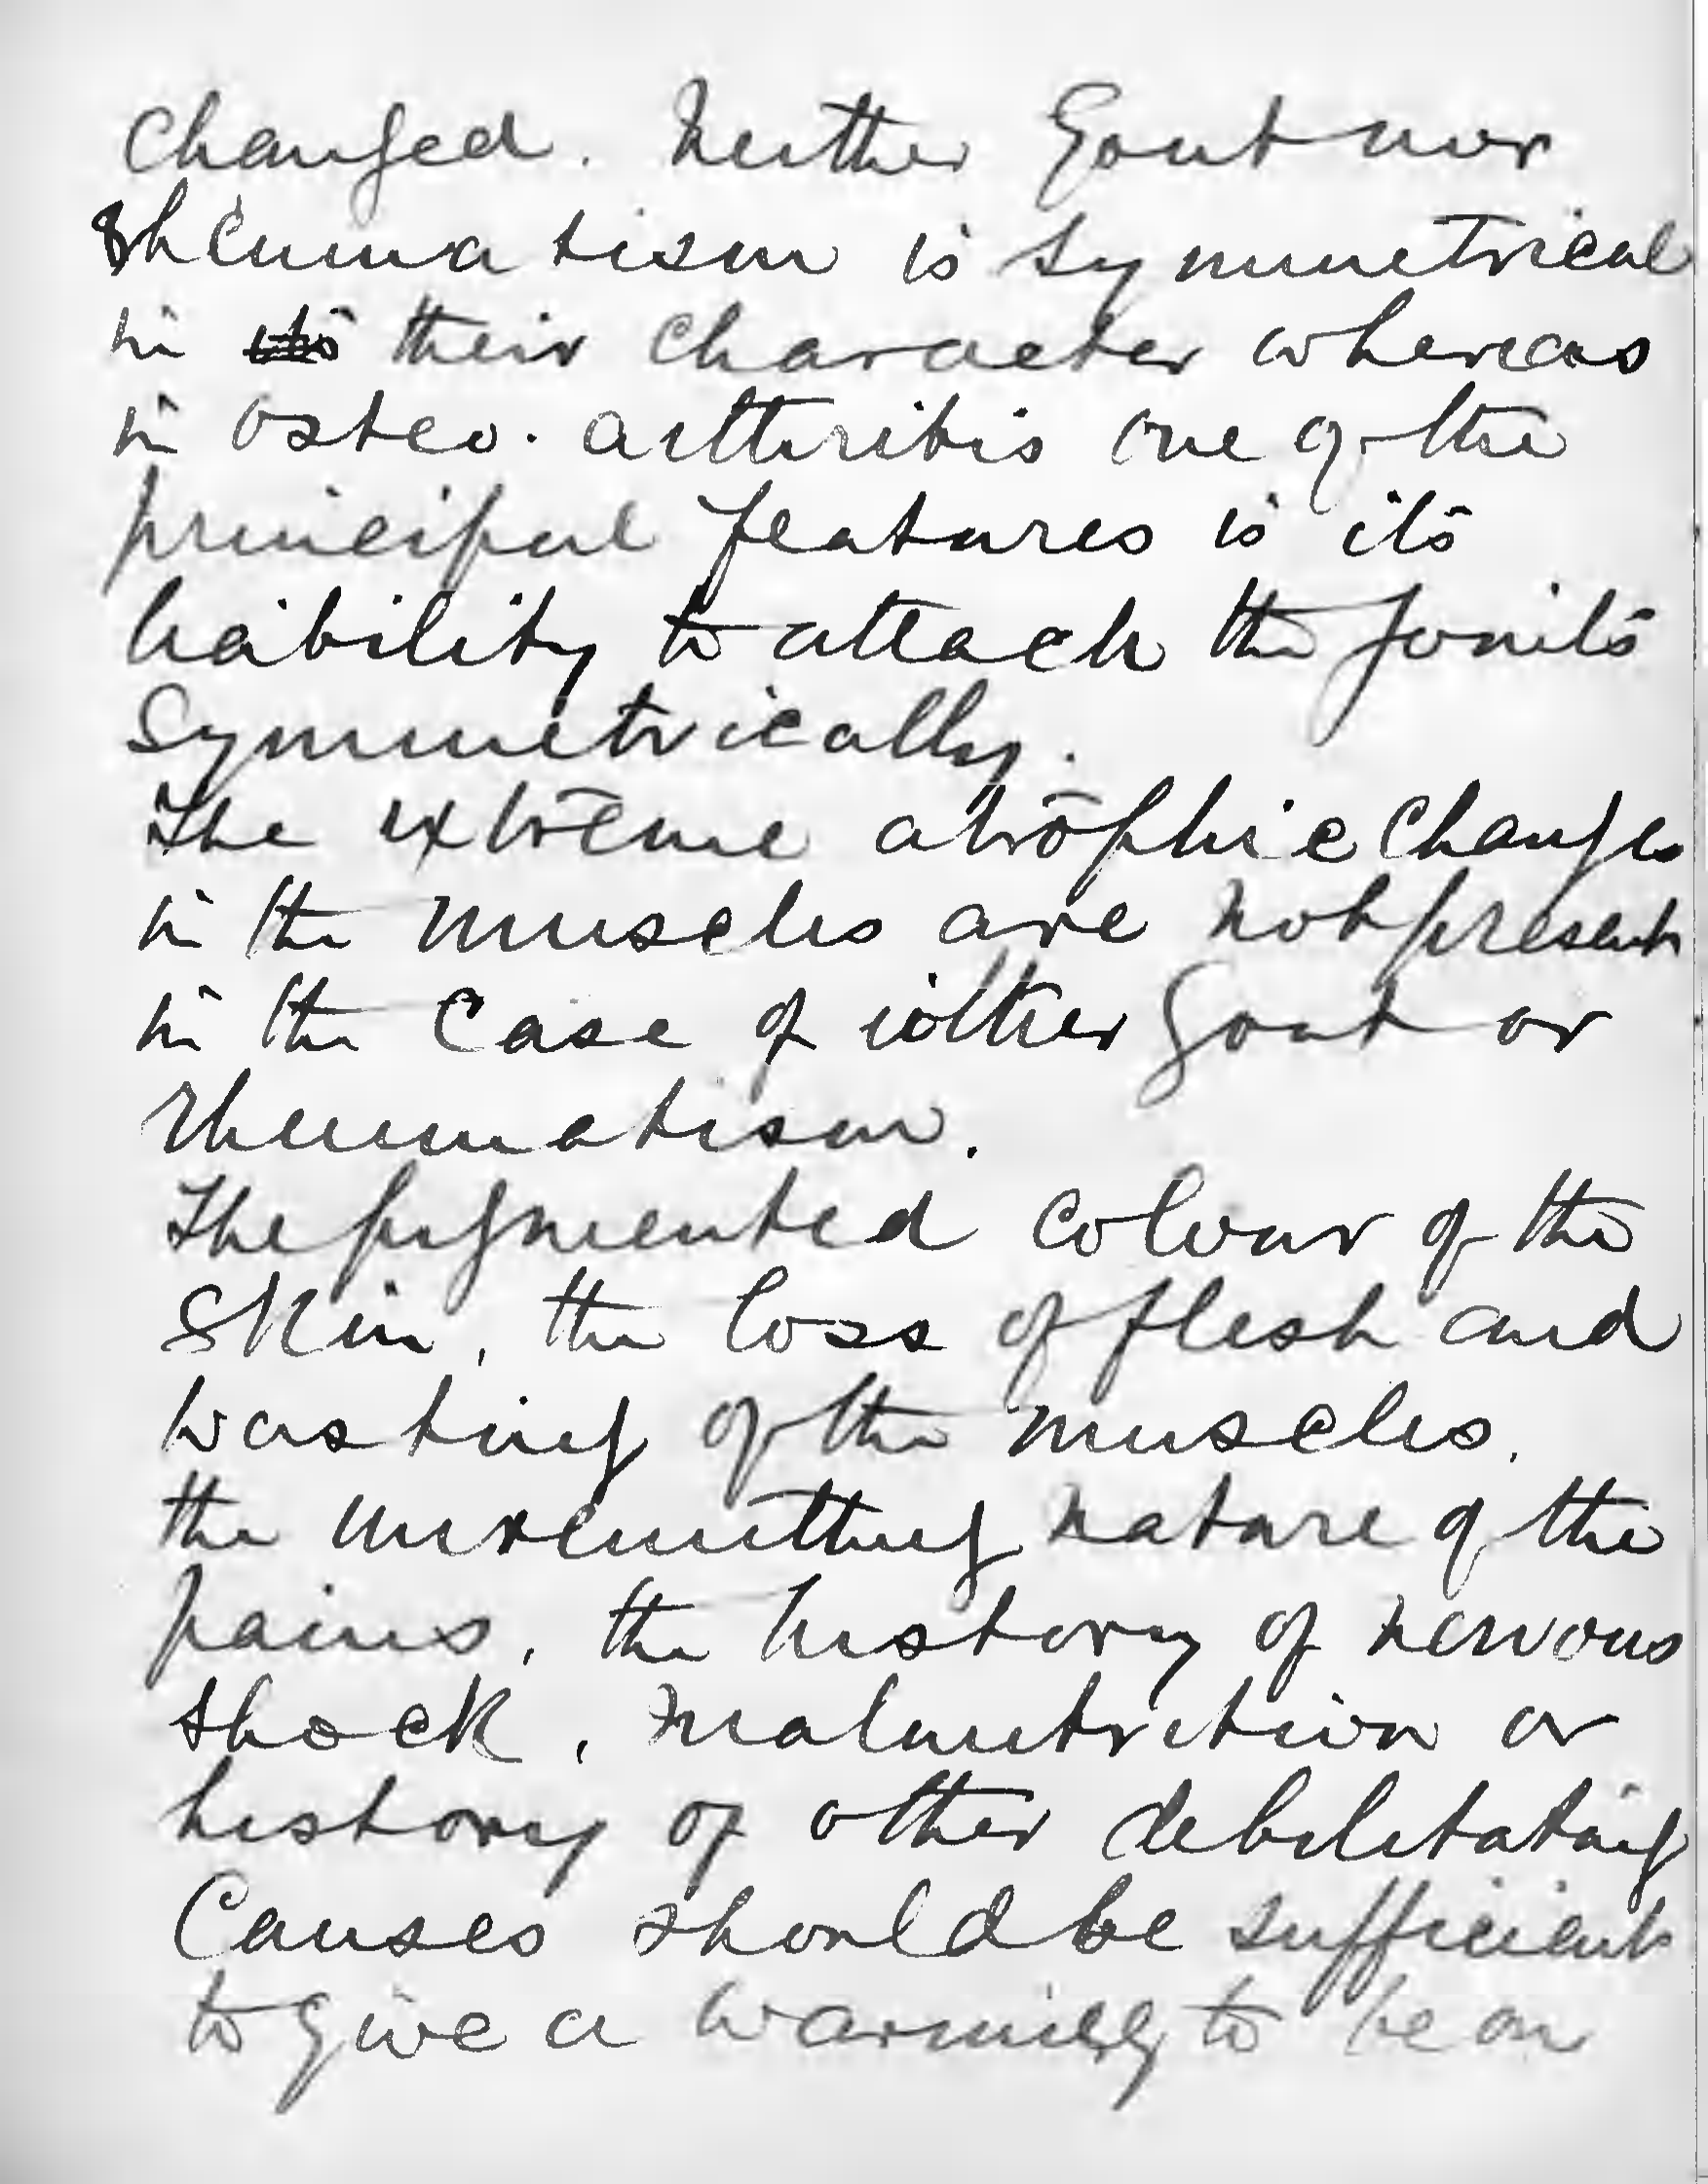 changed. Neither Gout nor
rheumatism is symmetrical
in its their character whereas
in osteo. arthritis one of the
principal features is its
liability to attack the joints
symmetrically.
The extreme atrophic changes
in the muscles are not present
in the case of either Gout or
rheumatism.
The pigmented colour of the
skin, the loss of flesh and
wasting of the muscles,
the unremitting nature of the
pains, the history of nervous
shock, malnutrition or
history of other debilitating
causes should be sufficient
to give a warning to be on